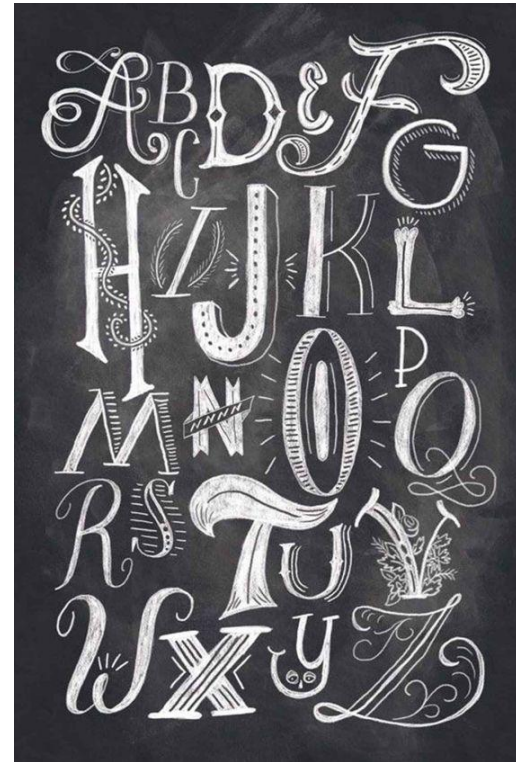 A B C D E F G
H I J K L
M N O P Q
R S T U V
W X Y Z